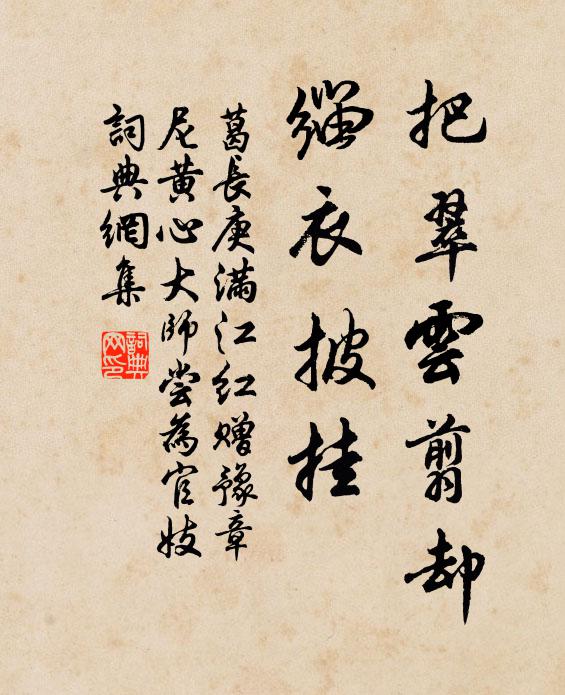 把翠雲剪却
緇衣披挂
葛長庚滿江红赠豫章
尼黄心大師嘗為官妓
詞典網集
詞典网印